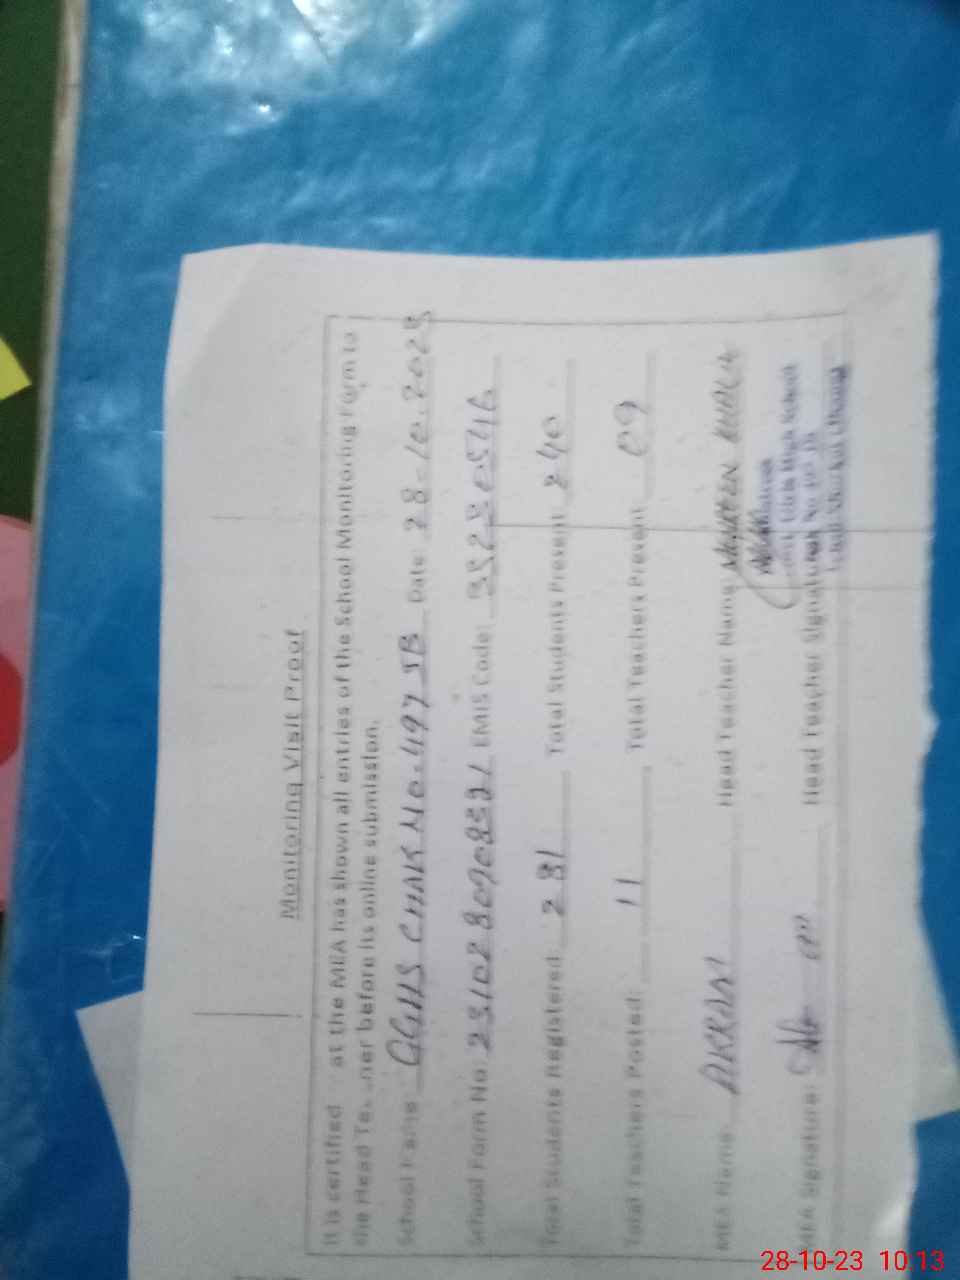 Monitoring Visit Proof
It is certified at the MEA has shown all entries of the School Monitoring Form to
the Head Te. ner before its online submission.
School Name GGHS CHAK NO. 497 JB Date: 28-10.2023
School Form No: EMIS Code:
Total Students Registered: 281 Total Students Present 240
Total Teachers Posted: 11 Total Teachers Present 09
MEA Name AKRAM Head Teacher Name
MEA Signature: Head Teacher Signature
Girls High School
28-10-23 10:13